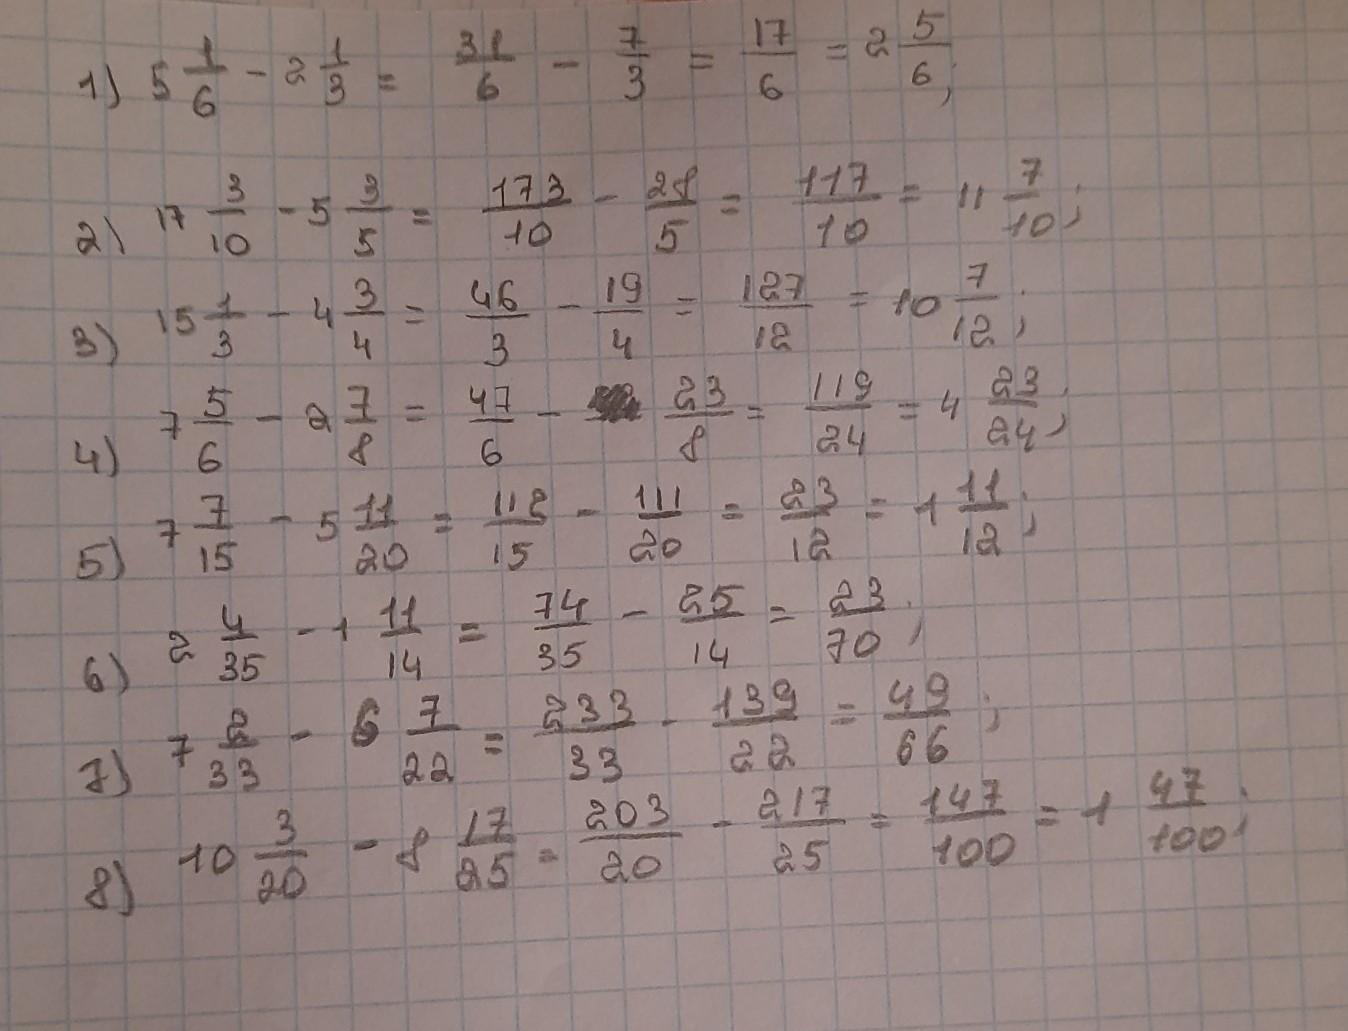 1) 5 1/6 - 2 1/3 = 31/6 - 7/3 = 17/6 = 2 5/6;
2) 17 3/10 - 5 3/5 = 173/10 - 28/5 = 117/10 = 11 7/10;
3) 15 1/3 - 4 3/4 = 46/3 - 19/4 = 127/12 = 10 7/12;
4) 7 5/6 - 2 7/8 = 47/6 - 23/8 = 119/24 = 4 23/24;
5) 7 7/15 - 5 11/20 = 112/15 - 111/20 = 23/12 = 1 11/12;
6) 2 4/35 - 1 11/14 = 74/35 - 25/14 = 23/70;
7) 7 2/33 - 6 7/22 = 233/33 - 139/22 = 49/66;
8) 10 3/20 - 8 17/25 = 203/20 - 217/25 = 147/100 = 1 47/100;